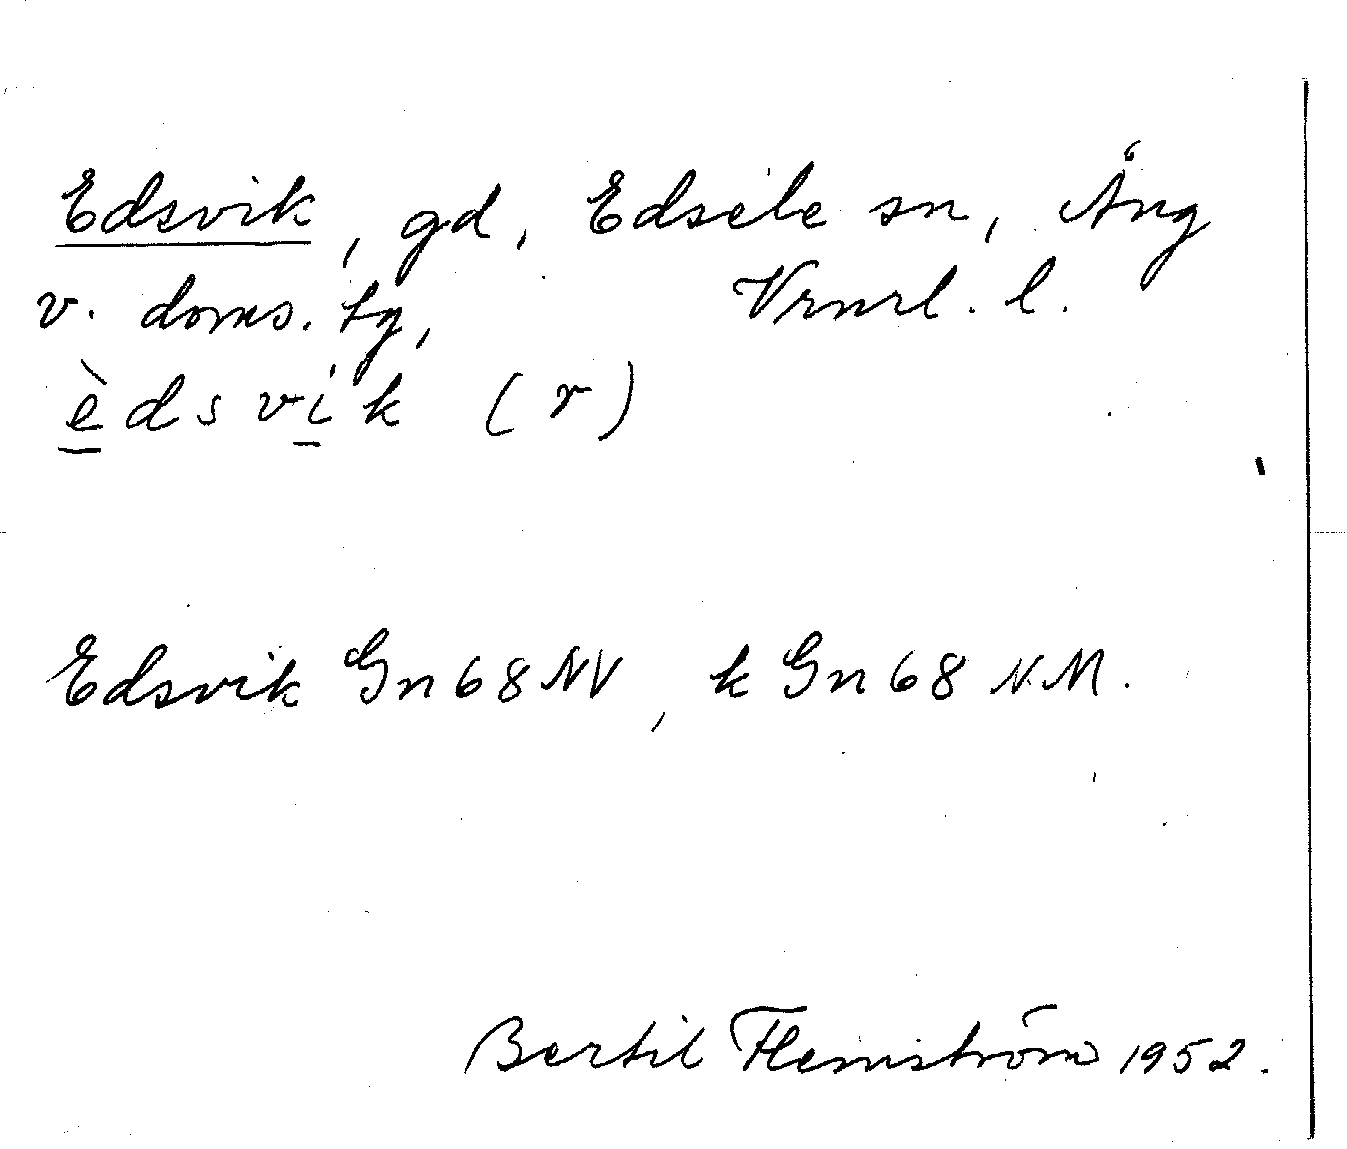 Edsvik, gd, Edsele sn, Ång
v. doms. tg, Vrnrl. l.
èdsvik (r)
Edsvik Gn68NV, k Gn68 NM.
Bertil Flemström 1952.